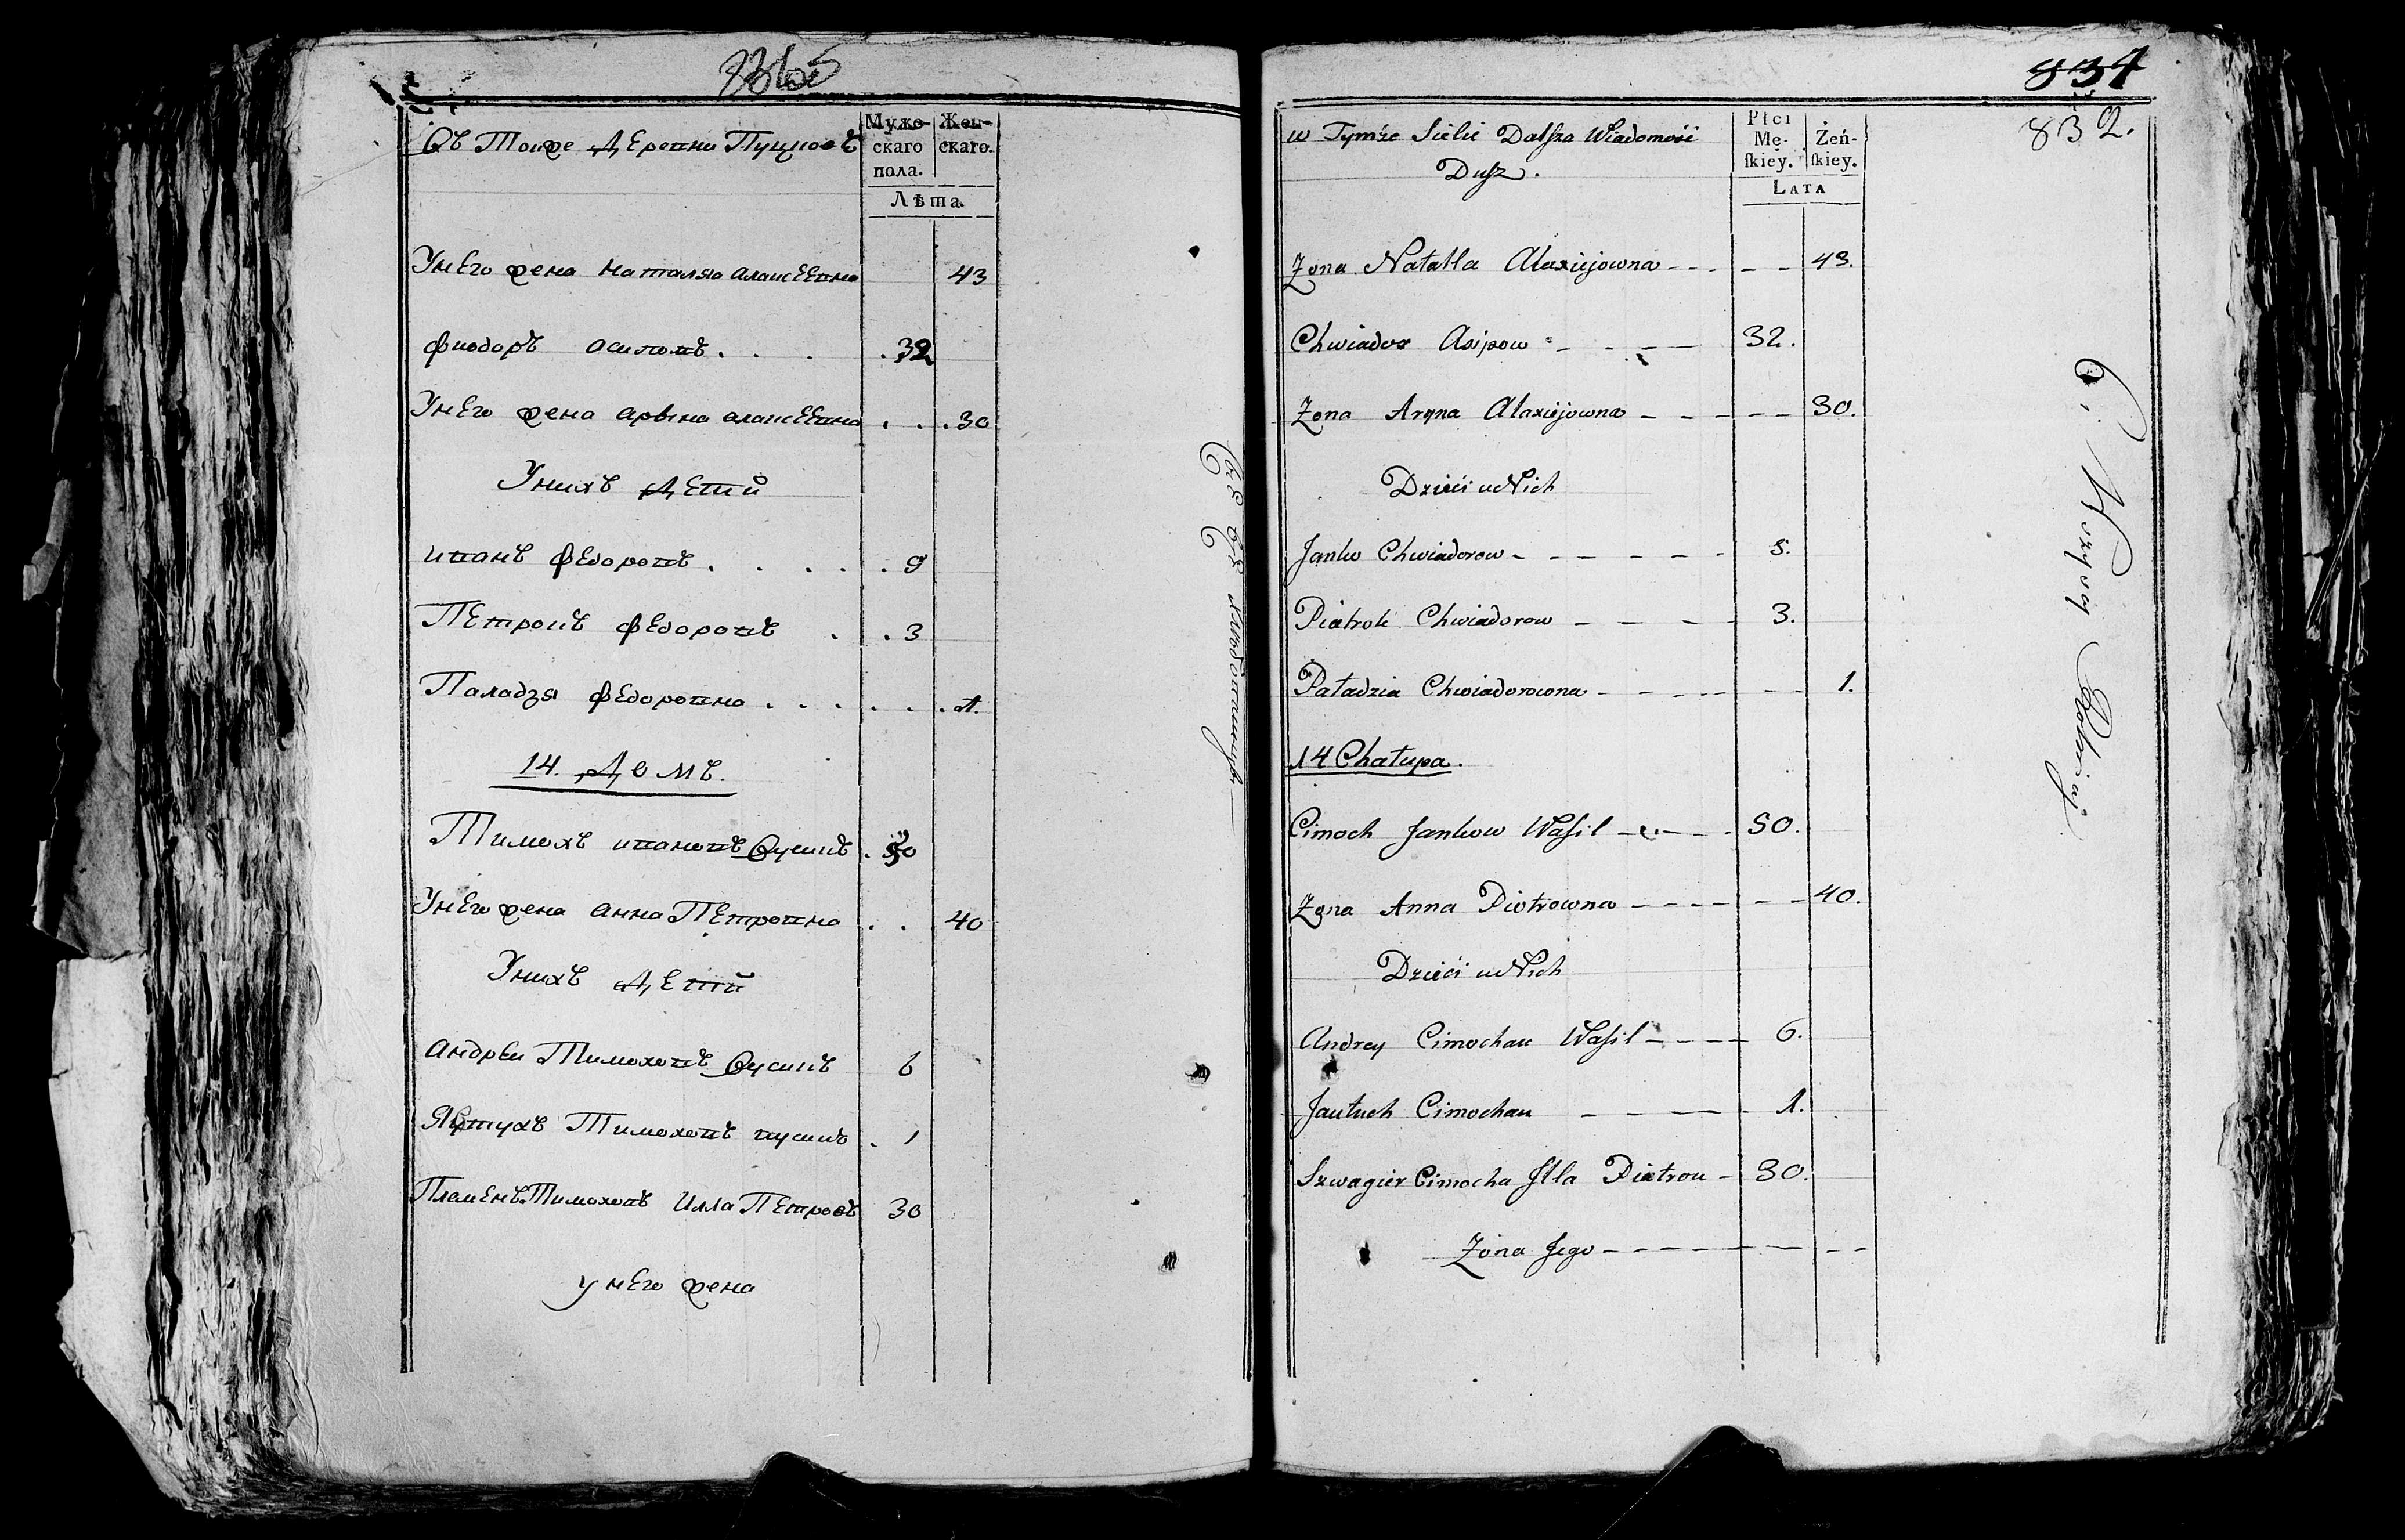 Въ Тойже Деревни Пуцковъ
Мужескаго пола.
Женскаго.
Лѣта.
Унего жена Наталья алаксеевна 43
Фиодоръ асиповъ . . . 32
Унего жена арына алаксеевна . . . 30
Унихъ Дети
иванъ Федоровъ . . . . . 9
Петрокъ Федоровъ . . 3
Паладзя Федоровна . . . . . . 1.
14. Домъ.
Тимохъ ивановъ 50
Унего жена анна Петровна . . 40
Унихъ Дети
андреи Тимоховъ 6
Яутухъ Тимоховъ . 1
Тимоховъ Илла Петровъ 30
у него жена
834
832.
w Tymże Siele Dalsza Wiadomość
Dusz.
Płci
Mę-
skiey.
Żeń-
skiey.
LATA
Zona Natalla Alaxiejowna - - - - - 43.
Chwiador Asipow - - - - 32.
Zona Aryna Alaxiejowna - - - - - 30.
Dzieci u Nich
Janko Chwiadorow - - - - - - 8.
Piatrok Chwiadorow - - - - 3.
Paładzia Chwiadorowna - - - - - - 1.
14 Chałupa.
Cimoch Jankow Wasil - - - 50.
Zona Anna Piotrowna - - - - - - 40.
Dzieci u Nich
Andrey Cimochau Wasil - - - - 6.
Jautuch Cimochau - - - - - 1.
Szwagier Cimocha Illa Piatrou - 30.
Zona Jego - - - - - - - -